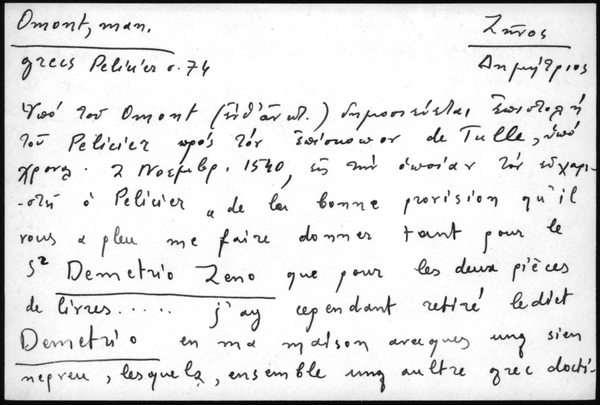 Omont, man. Ζῆνος
grecs Pelicier σ. 74 Δημήτριος
Ὑπό τοῦ Omont (ἔνθ' ἀνωτ.) δημοσιεύεται ἐπιστολή
τοῦ Pelicier πρός τόν ἐπίσκοπον de Tulle, ὑπό
χρονολ. 2 Νοεμβρ. 1540, εἰς τήν ὁποίαν τόν εὐχαρι-
-στεῖ ὁ Pelicier „ de la bonne provision qu'il
vous a pleu me faire donner tant pour le
Sr Demetrio Zeno que pour les deux pièces
de livres..... j'ay cependant retiré ledict
Demetrio en ma maison avecques ung sien
nepveu, lesquelz, ensemble ung aultre grec docti-